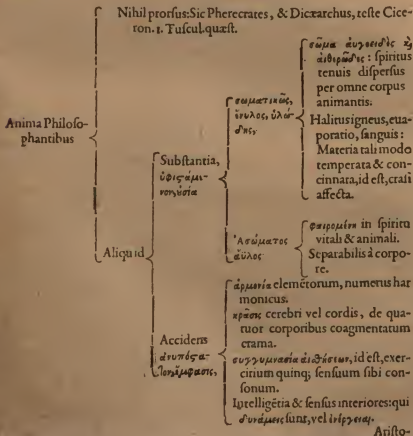 Nihil prorsus: Sic Pherecrates, & Dicæarchus, teste Cice-
ron. 1. Tuscul. quæst.
Anima Philoso-
phantibus
Aliquid
Substantia,
σωματικῶς,
ἔνυλος, ὑλώ-
δης,
σῶμα αὐγοειδὲς ϗ
αἰθεριῶδες: spiritus
tenuis dispersus
per omne corpus
animantis.
Halitus igneus, eua-
poratio, sanguis:
Materia tali modo
temperata & con-
cinnata, id est, crasi
affecta.
Ἀσώματος
ἄϋλος
in spiritu
vitali & animali.
Separabilis à corpo-
re.
Accidens
ἁρμονία elemētorum, numerus har
monicus.
κρᾶσις cerebri vel cordis, de qua-
tuor corporibus coagmentatum
crama.
συγγυμνασία αἰσθήσεων, id est, exer-
citium quinq; sensuum sibi con-
sonum.
Intelligētia & sensus interiores: qui
δυνάμεις sunt, vel ἐνέργειαι.
Aristo-